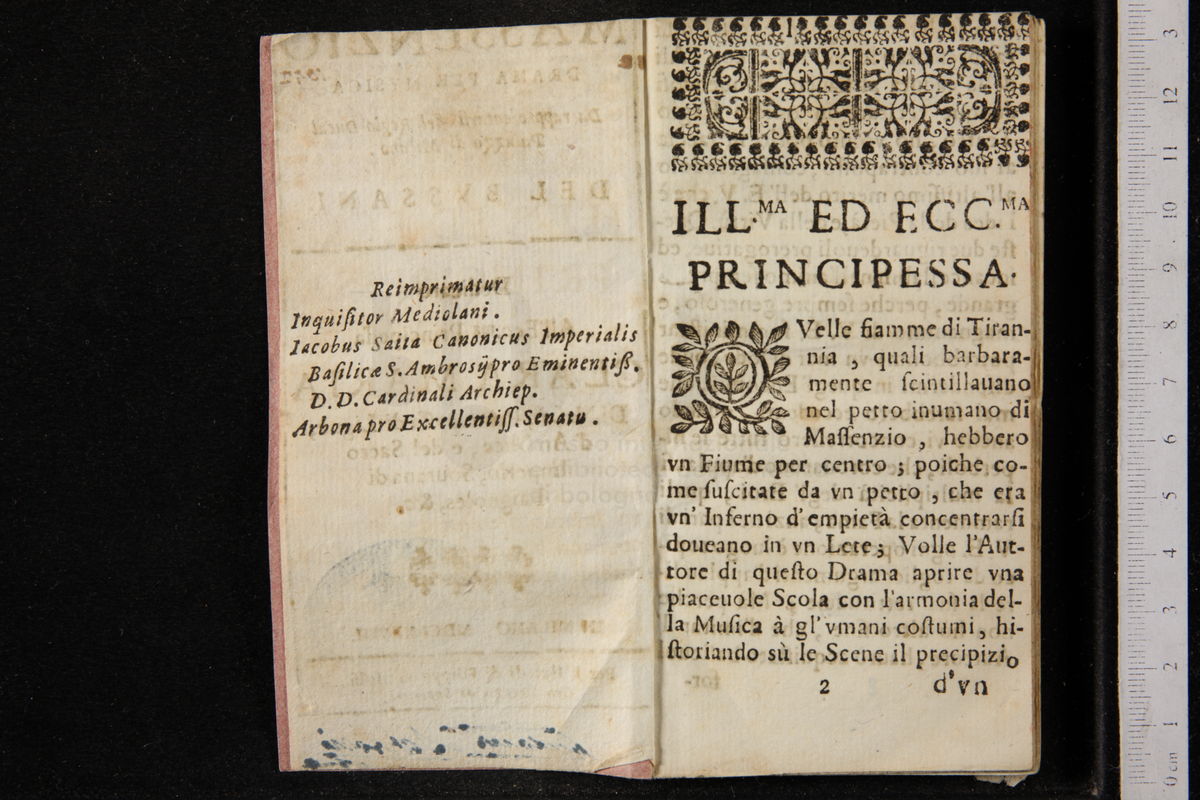 Reimprimatur
Inquiſitor Mediolani.
Iacobus Saita Canonicus Imperialis
Baſilicæ S. Ambrosÿ pro Eminentiß.
D. D. Cardinali Archiep.
Arbona pro Excellentiſſ. Senatu.
ILL.MA ED ECC.MA
PRINCIPESSA.
QVelle fiamme di Tiran-
nia, quali barbara-
mente ſcintillauano
nel petto inumano di
Maſſenzio, hebbero
vn Fiume per centro; poiche co-
me ſuſcitate da vn petto, che era
vn' Inferno d'empietà concentrarſi
doueano in vn Lete; Volle l'Aut-
tore di queſto Drama aprire vna
piaceuole Scola con l'armonia del-
la Muſica à gl'vmani coſtumi, hi-
ſtoriando sù le Scene il precipizio
2 d'vn